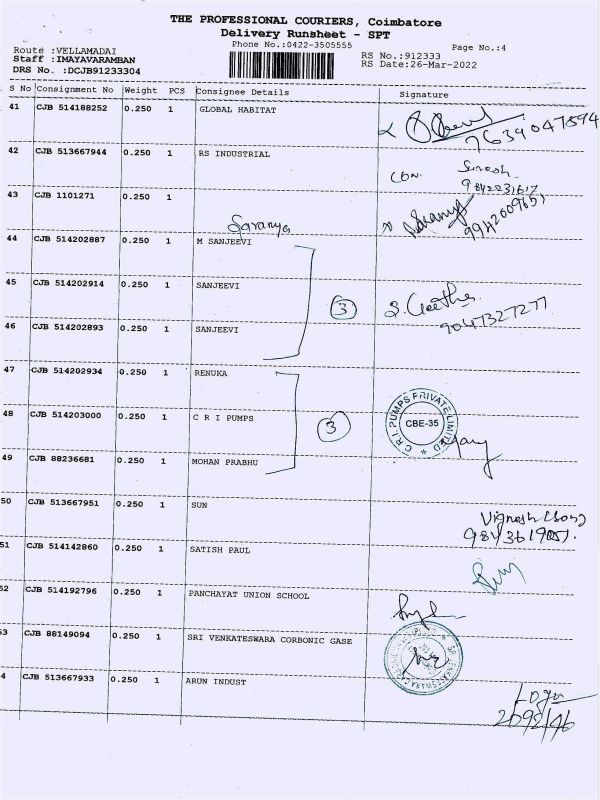 THE PROFESSIONAL COURIERS, Coimbatore
Delivery Runsheet - SPT
Phone No.:0422-3505555
Page No.:4
Route :VELLAMADAI
Staff :IMAYAVARAMBAN
DRS No. :DCJB91233304
RS No.:912333
RS Date:26-Mar-2022
S No Consignment No Weight PCS Consignee Details Signature
41 CJB 514188252 0.250 1 GLOBAL HABITAT
7639047894
42 CJB 513667944 0.250 1 RS INDUSTRIAL
CON. Suresh
9842231617
43 CJB 1101271 0.250 1
Saranya
9942609651
44 CJB 514202887 0.250 1 M SANJEEVI
45 CJB 514202914 0.250 1 SANJEEVI
3 S. Geetha
9047327277
46 CJB 514202893 0.250 1 SANJEEVI
47 CJB 514202934 0.250 1 RENUKA
48 CJB 514203000 0.250 1 C R I PUMPS
3 C.R.I PUMPS PRIVATE LIMITED
CBE-35
49 CJB 88236681 0.250 1 MOHAN PRABHU
50 CJB 513667951 0.250 1 SUN
Vignesh (Son)
51 CJB 514142860 0.250 1 SATISH PAUL
52 CJB 514192796 0.250 1 PANCHAYAT UNION SCHOOL
53 CJB 88149094 0.250 1 SRI VENKATESWARA CORBONIC GASE
4 CJB 513667933 0.250 1 ARUN INDUST
Logu